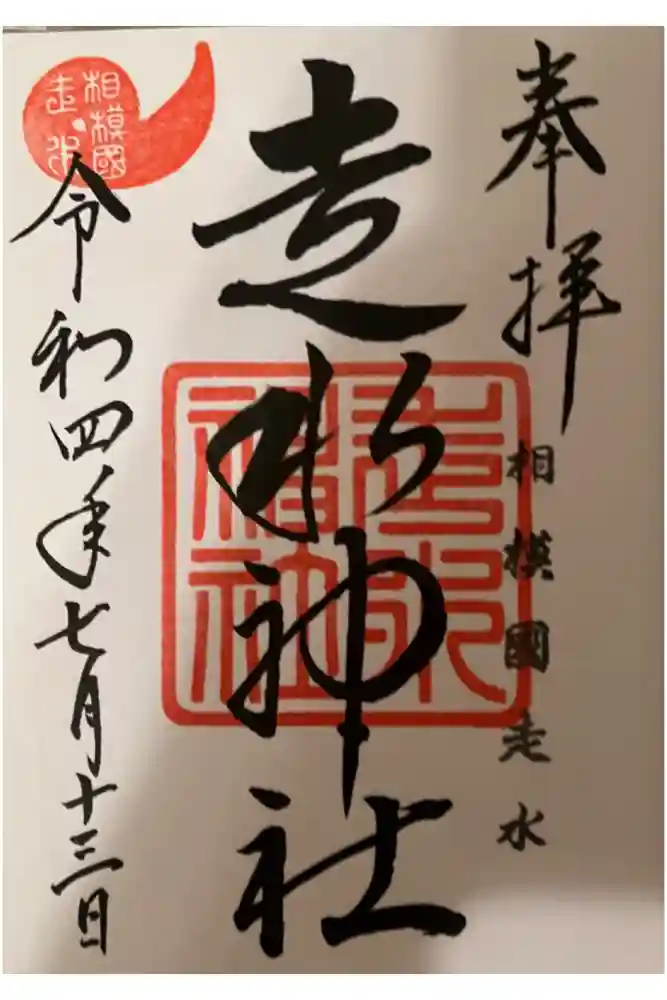 奉拝
相模國走水
走水神社
走水神社
令和四年七月十三日
相模國
走水